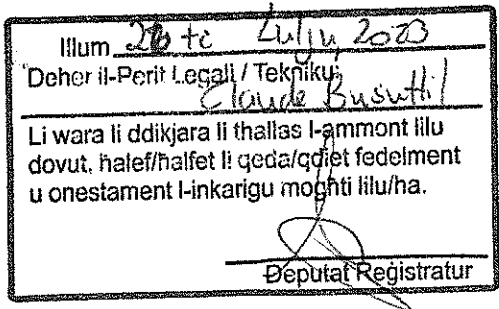 Illum 26 ta Lulju 2023
Deher il-Perit Legali / Tekniku:
Claude Busuttil
Li wara li ddikjara li thallas l-ammont lilu
dovut, ħalef/ħalfet li qeda/qdiet fedelment
u onestament l-inkarigu mogħti lilu/ha.
Deputat Reġistratur